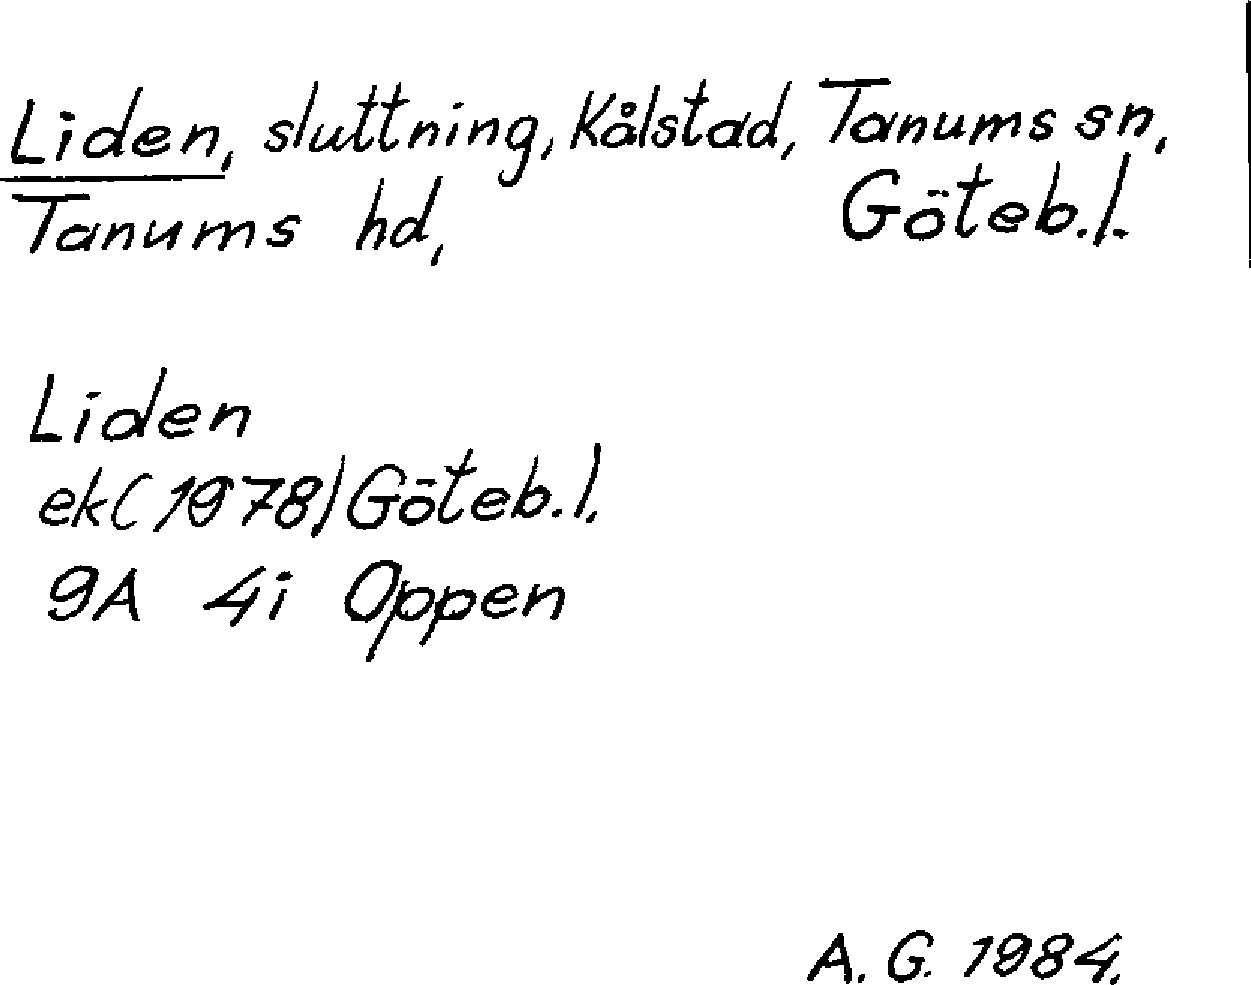 Liden, sluttning, Kålstad, Tanums sn,
Tanums hd, Göteb.l.
Liden
ek (1978) Göteb.l.
9A 4i Oppen
A. G. 1984.